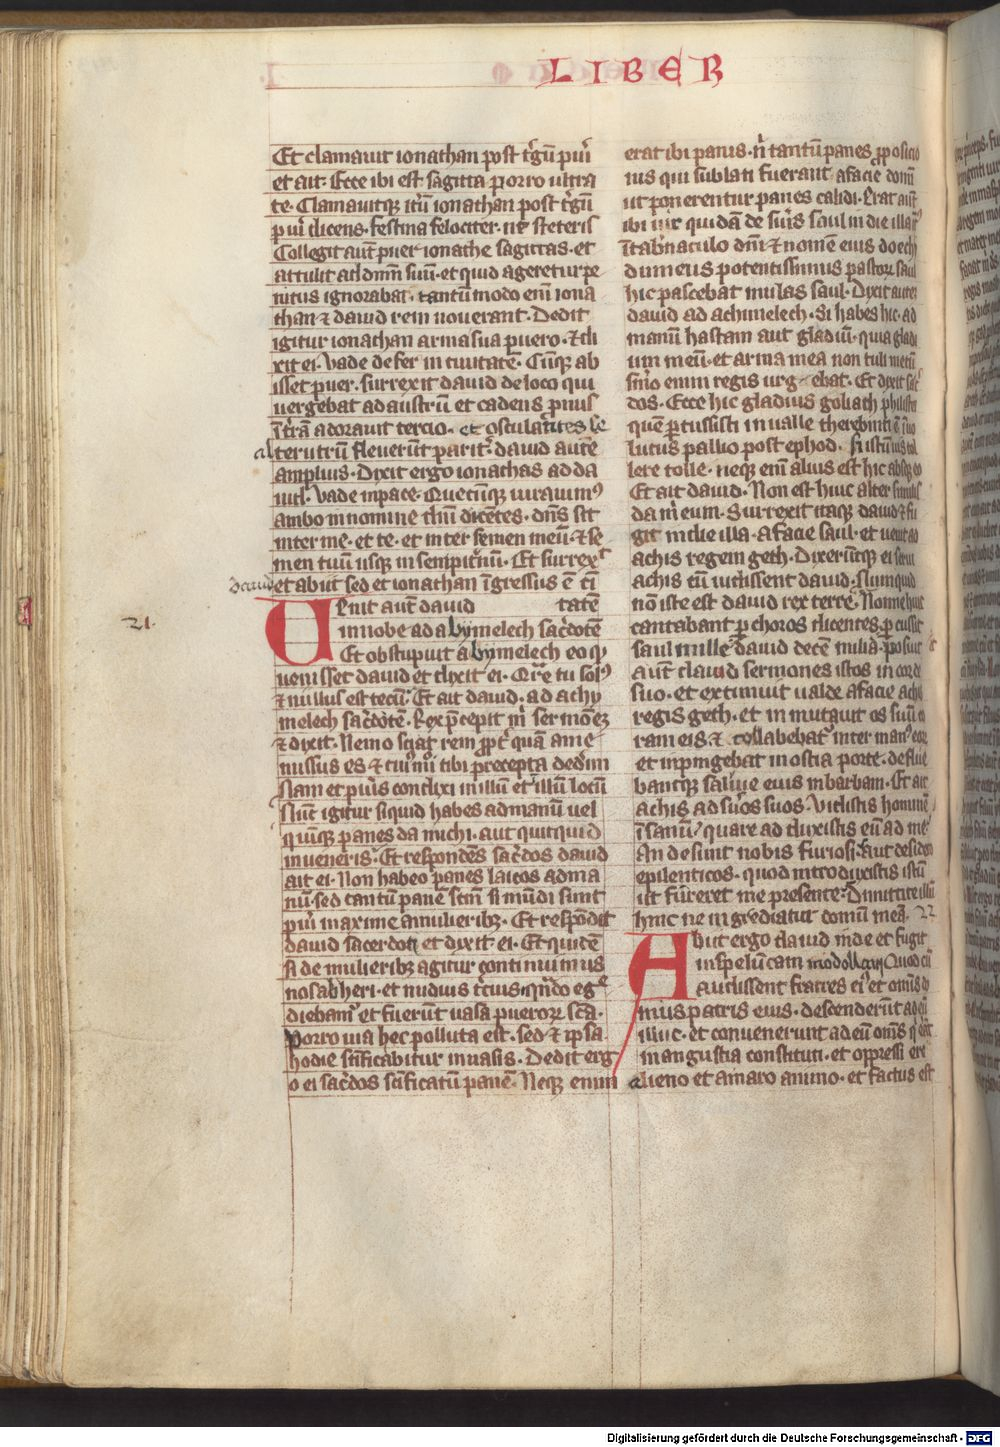 LIBER
Et clamauit ionathan post t'gū pu'i
et ait. Ecce ibi est sagitta porro ultra
te. Clamauitqꝫ it'ū ionathan post t'gū
pu'i dicens. festina felociter. ne steteris
Collegit aut̄ puer ionathe sagittas. et
attulit ad dnm̄ suū. et quid ageretur pe
nitus ignorabat. tantū modo eni ̄ iona
than ⁊ dauid rem nouerant. Dedit
igitur ionathan arma sua puero. ⁊ di
xit ei. Vade defer in ciuitatē. Cūqꝫ ab
isset puer. surrexit dauid de loco qui
uergebat ad austrū et cadens pnus
ī t'rā adorauit tercio. et osculātes se
alterutrū fleuerūt parit'. dauid autē
amplius. Dixit ergo ionathas ad da
uid. Vade in pace. Quecūqꝫ iurauim9
ambo in nomine dn̄i dicētes. dn̄s sit
inter me. et te. et inter semen meū. ⁊ se
men tuū usqꝫ in sempit'nū. Et surrexit
dauid et abiit sed et ionathan īgressus ē ci
21. Uenit aut̄ dauid tatē
in nobe ad abymelech sac'dotē
Et obstupuit abymelech eo qꝫ
uenisset dauid et dixit ei. Qͣre tu sol9
⁊ nullus est tecū. Et ait dauid. ad achy
melech sac'dotē. Rex p̄cepit m̄ sermonē
⁊ dixit. Nemo sciat rem ꝓpt' quā a me
missus es ⁊ cui9 mōi tibi precepta dedi
Nam et pu'is condixi in illū et illū locū
Nūc igitur siquid habes ad manū uel
quīqꝫ panes da michi. aut quitquid
inueneris. Et respondēs sac'dos dauid
ait ei. Non habeo panes laicos ad ma
nū. sed tantū panē sc̄m si mūdi sunt
pu'i maxime a mulieribꝫ. Et respōdit
dauid sacerdoti et dixit ei. Et quidē
si de mulieribꝫ agitur continuimus
nos ab heri. et nudius t'cius. qn̄do eg'e
diebam' et fuerūt uasa pueroꝝ sc̄a.
Porro uia hec polluta est. sed ⁊ ipsa
hodie sc̄ificabitur in uasis. Dedit erg
o ei sac'dos sc̄ificatū panē. Neqꝫ enim
erat ibi panis. n̄ tantū panes ꝓposicio
nis qui sublati fuerant a facie domi
ut ponerentur panes calidi. Erat aut̄
ibi uir quidā de su'is saul in die illa
ī tab'naculo dn̄i ⁊ nomē eius doech
dumeus potentissimus pastoꝝ saul
hic pascebat mulas saul. Dixit autē
dauid ad achimelech. Si habes hic. ad
manū hastam aut gladiū. quia gladi
um meū. et arma mea non tuli mecū
sm̄o enim regis urgebat. Et dixit sac'
dos. Ecce hic gladius goliath philistei
quē ꝑcussisti in ualle therebinti ē īuo
lutus pallio post ephod. si istū uis tol
lere tolle. neqꝫ eni ̄ alius est hic absqꝫ eo
Et ait dauid. Non est huic alter similis
da m̄ eum. Surrexit itaqꝫ dauid ⁊ fu
git in die illa. a facie saul. et uenit ad
achis regem geth. Dixerūtqꝫ ei serui
achis cū uidissent dauid. Nunquid
nō iste est dauid rex terre. Nonne huic
cantabant ꝑ choros dicentes. ꝑcussit
saul mille ⁊ dauid decē milia. Posuit
aut̄ dauid sermones istos in corde
suo. et extimuit ualde a facie achis
regis geth. et inmutauit os suū co
ram eis. ⁊ collabebat' inter man9 eoꝝ
et inpingebat in ostia porte. deflue
bantqꝫ saliue eius in barbam. Et ait
achis ad su'os suos. Vidistis hominē
īsanū. quare adduxistis eū ad me
An desunt nobis furiosi. aut desider
epilenticos. quod introduxistis istū
ut fureret me presente. Dimittite illū
hinc ne ingrediatur domū meā. 22
Abiit ergo dauid inde et fugit
in spelūcam in odollam Quod cū
Audissent fratres ei9 et omīs do
mus patris eius. descenderūt ad eū
illuc. et conuenerunt ad eū omīs q' erāt
in angustia constituti. et oppressi ere
alieno et amaro animo. et factus est
Digitalisierung gefördert durch die Deutsche Forschungsgemeinschaft - DFG